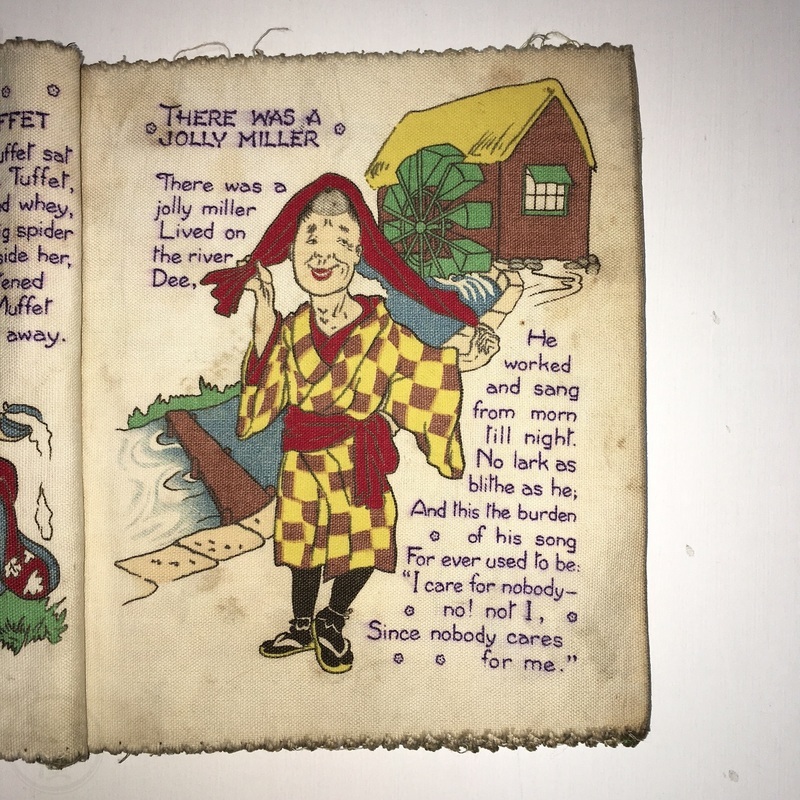 FFET
uffet sat
Tuffet,
d whey,
g spider
side her,
ened
Muffet
away.
THERE WAS A
JOLLY MILLER
There was a
jolly miller
Lived on
the river
Dee,
He
worked
and sang
from morn
till night.
No lark as
blithe as he;
And this the burden
of his song
For ever used to be:
"I care for nobody—
no! not I,
Since nobody cares
for me."